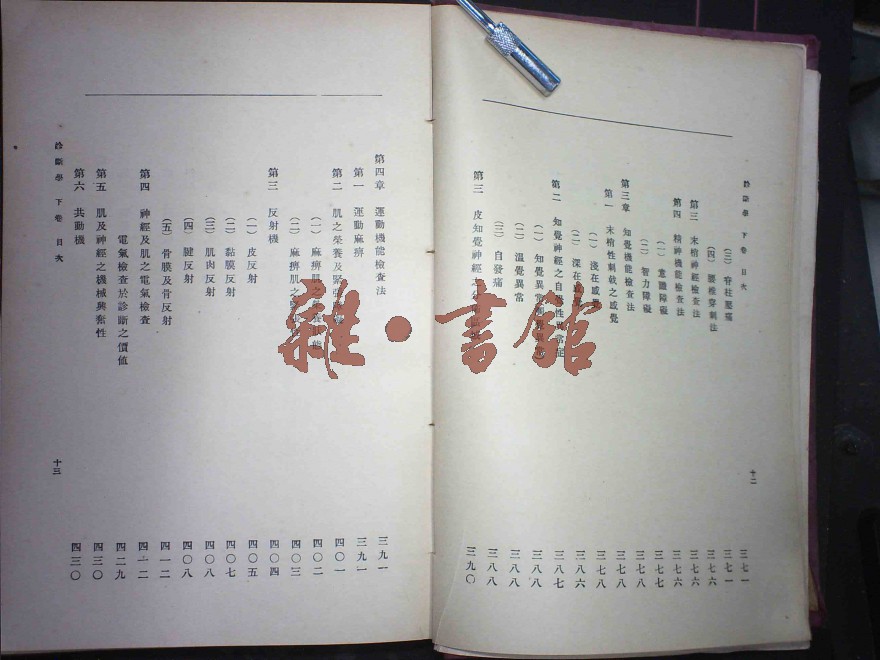 診斷學 下卷 目次
(三) 脊柱壓痛 三七一
(四) 腰椎穿刺法 三七一
第三 末梢神經檢查法 三七六
第四 精神機能檢查法 三七六
(一) 意識障礙 三七七
(二) 智力障礙 三七八
第三章 知覺機能檢查法 三七八
第一 末梢性刺戟之感覺 三七八
(一) 淺在感覺
(二) 深在
第二 知覺神經之自發性異常症
(一) 知覺異常 三八八
(二) 溫覺異常 三八八
(三) 自發痛 三八八
第三 皮知覺神經之 三九〇
十二
診斷學 下卷 目次
第四章 運動機能檢查法 三九一
第一 運動麻痹 三九一
第二 肌之榮養及緊張 四〇一
(一) 麻痹肌之 狀態 四〇二
(二) 麻痹肌之 四〇三
第三 反射機 四〇四
(一) 皮反射 四〇五
(二) 黏膜反射 四〇七
(三) 肌肉反射 四〇八
(四) 腱反射 四〇八
(五) 骨膜及骨反射 四一二
第四 神經及肌之電氣檢查 四一二
電氣檢查於診斷之價値 四二九
第五 肌及神經之機械興奮性 四三〇
第六 共動機 四三〇
十三
雜·書館